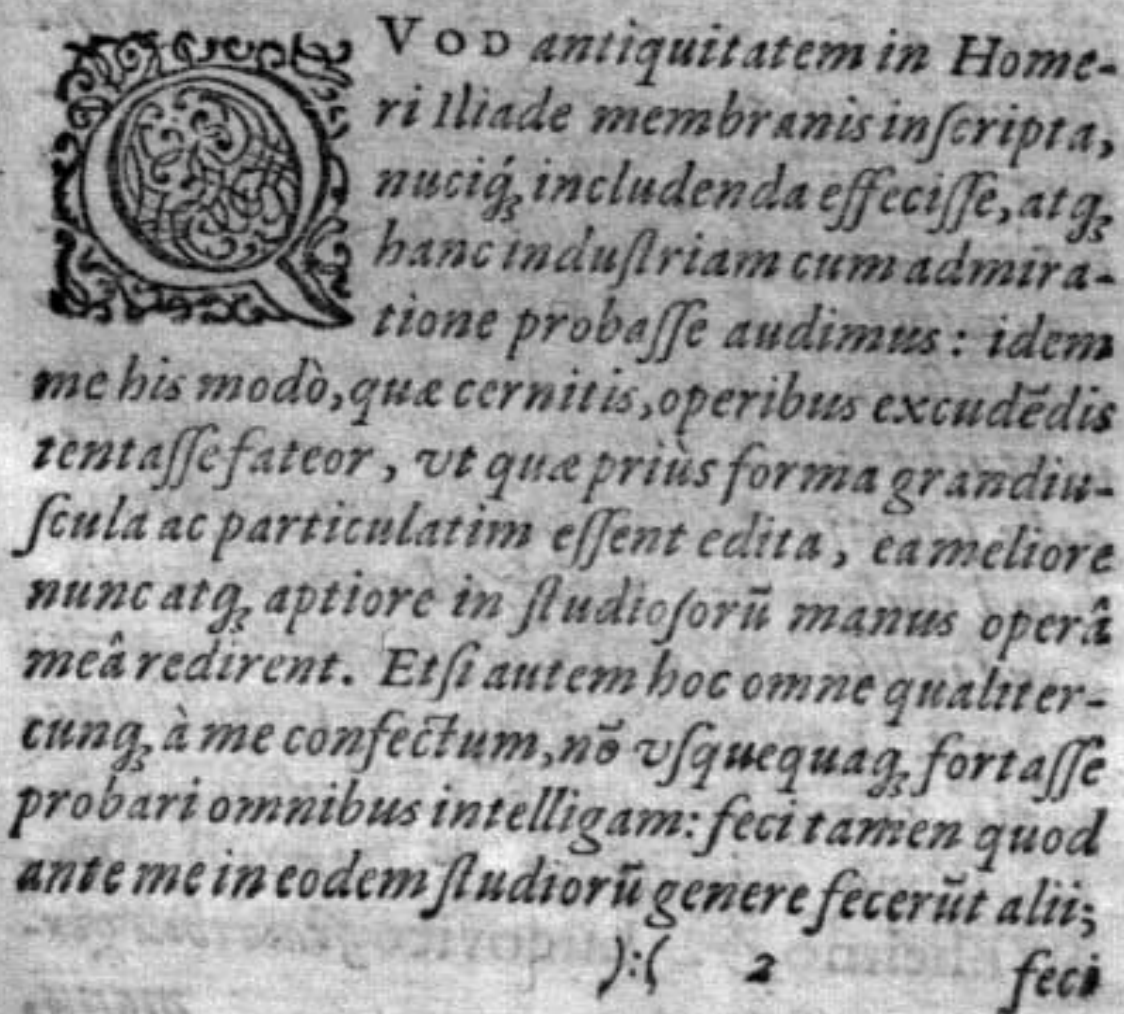 QVOD antiquitatem in Home-
ri Iliade membranis inſcripta,
nuciq́ꝫ includenda effeciſſe, atqꝫ
hanc induſtriam cum admira-
tione probaſſe audimus: idem
me his modò, quæ cernitis, operibus excudēdis
tentaſſe fateor, vt quæ priùs forma grandiu-
ſcula ac particulatim eſſent edita, ea meliore
nunc atqꝫ aptiore in ſtudioſorū manus operâ
meâ redirent. Etſi autem hoc omne qualiter-
cunqꝫ à me confectum, nō vſquequaqꝫ fortaſſe
probari omnibus intelligam: feci tamen quod
ante me in eodem ſtudiorū genere fecerūt alii;
):( 2 feci